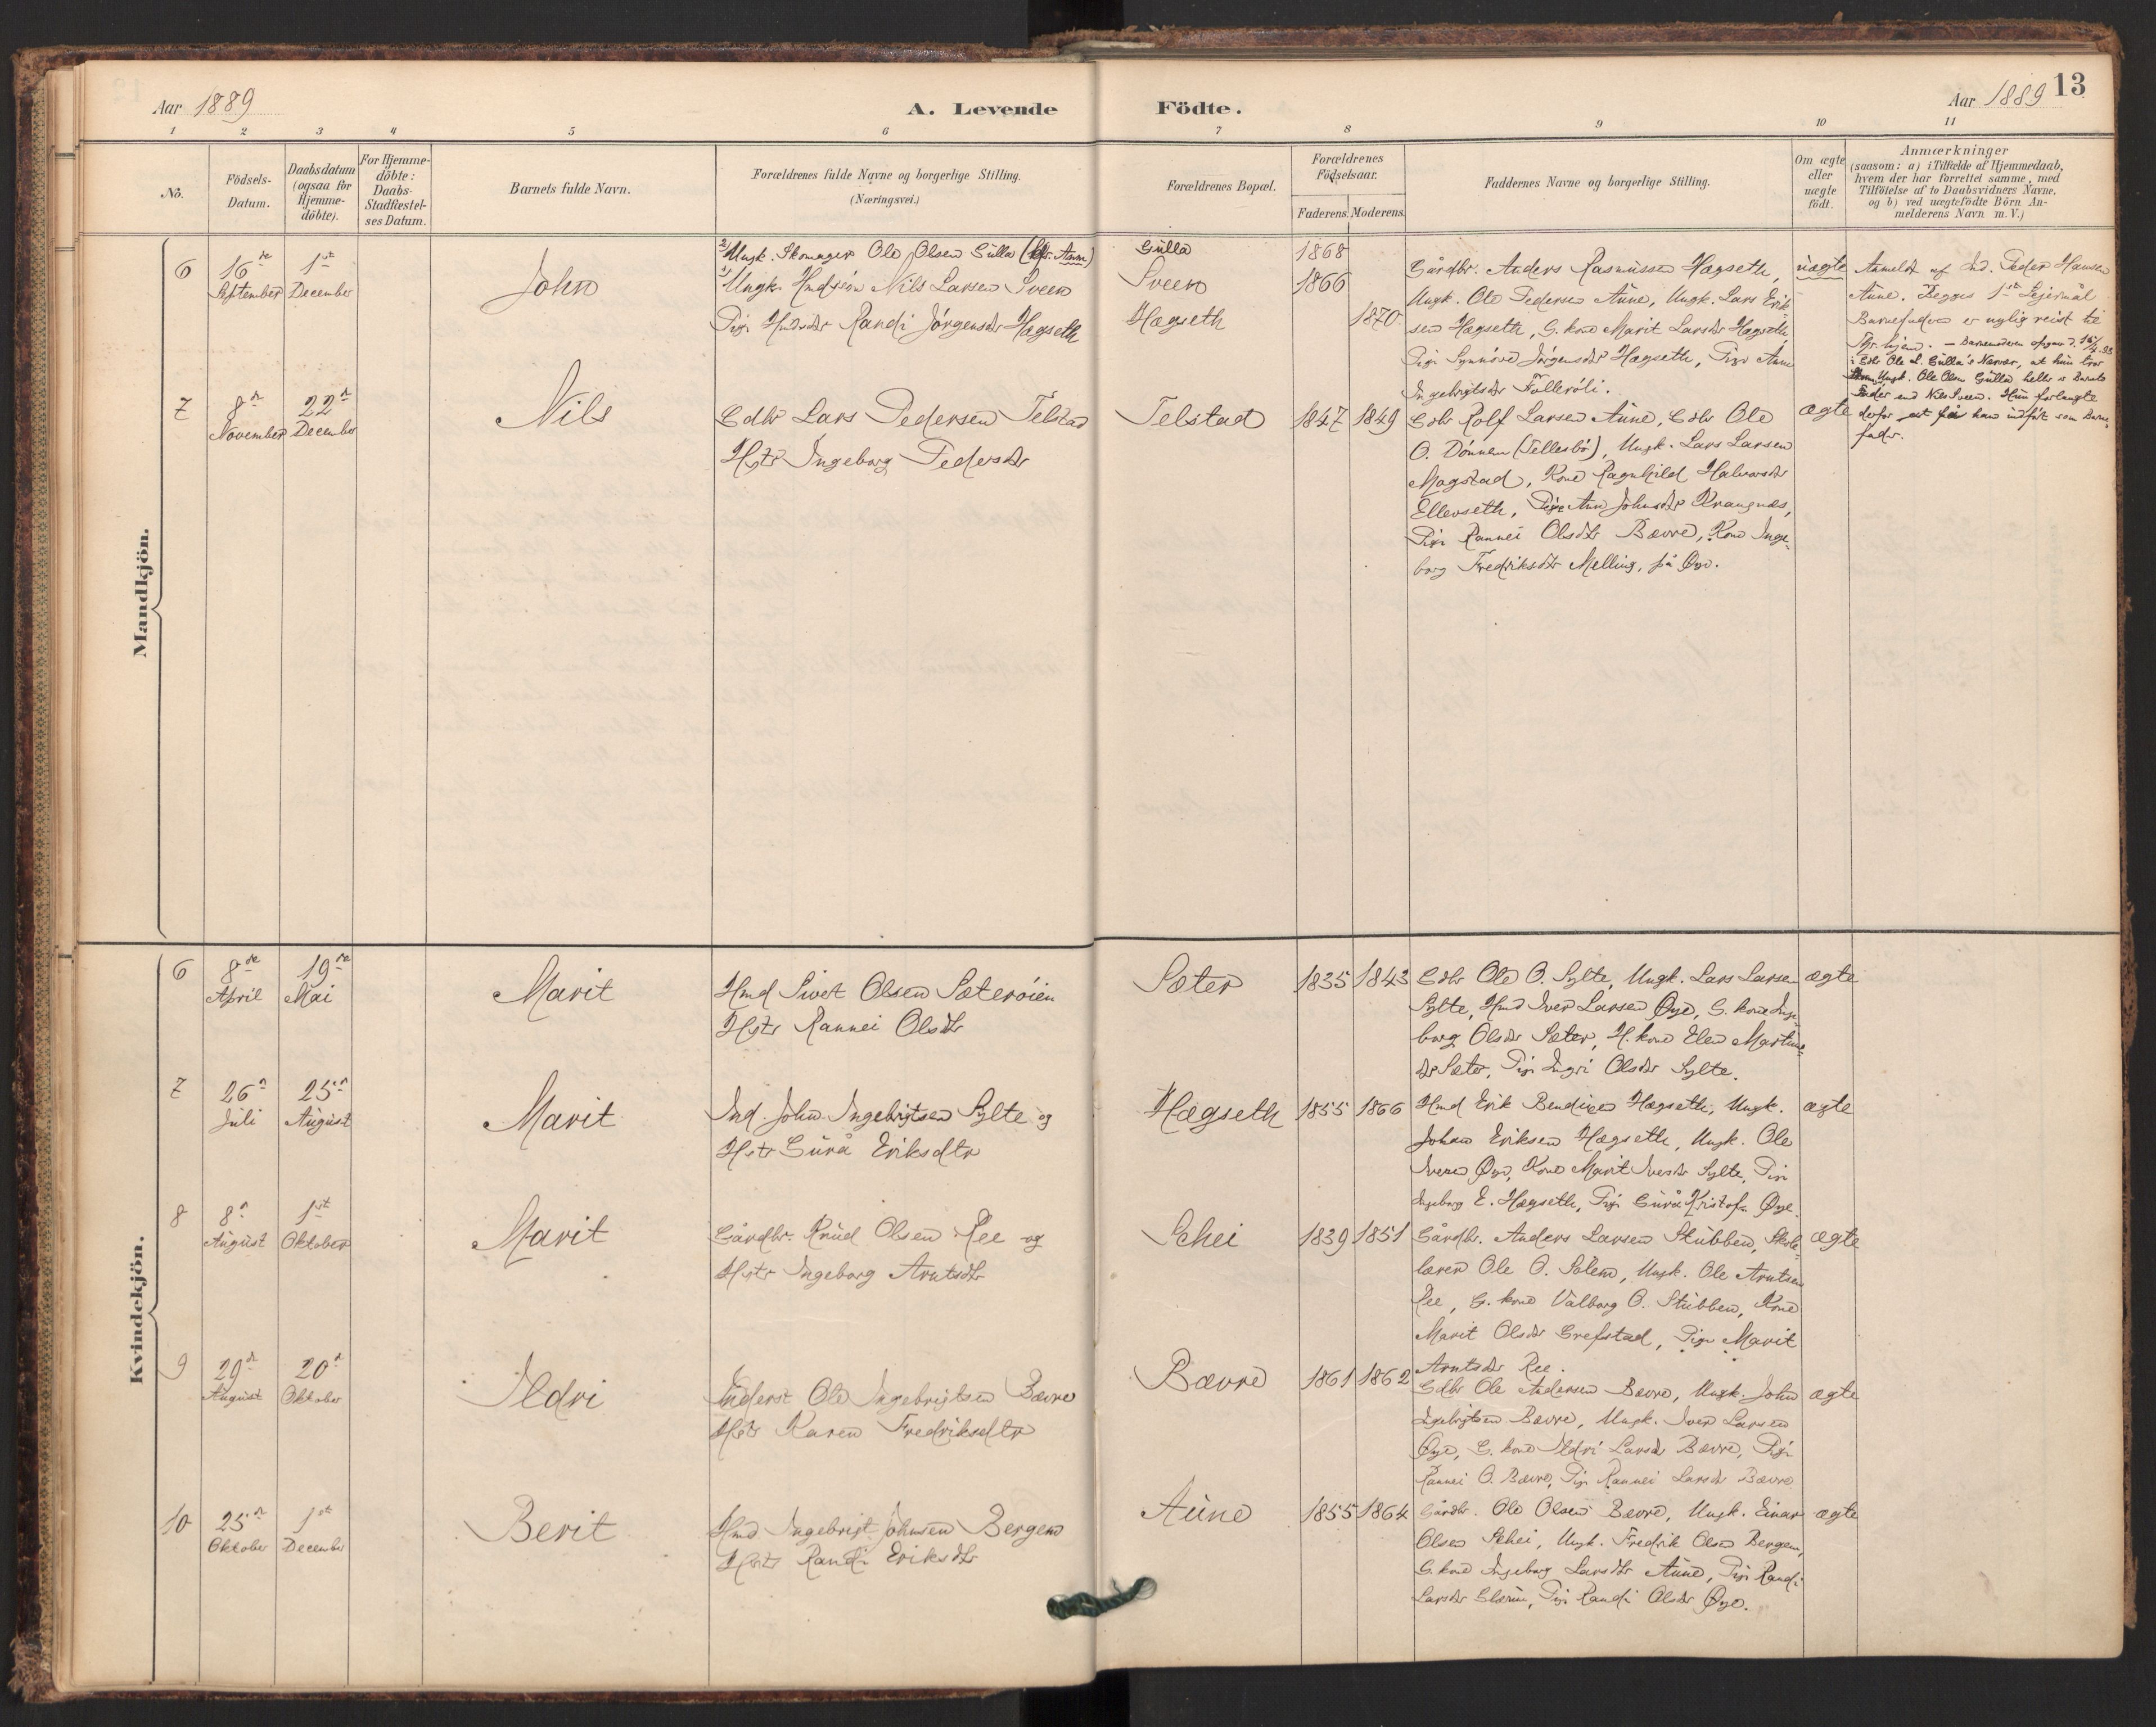 Aar 1889 A. Levende Födte. Aar 1889 13
1 2 3 4 5 6 7 8 9 10 11
No.
Födsels-
Datum.
Daabsdatum
(ogsaa for
Hjemme-
döbte).
For Hjemme-
döbte:
Daabs-
Stadfæstel-
ses Datum.
Barnets fulde Navn.
Forældrenes fulde Navne og borgerlige Stilling.
(Næringsvei.)
Forældrenes Bopæl.
Forældrenes
Födselsaar.
Faderens. Moderens.
Faddernes Navne og borgerlige Stilling.
Om ægte
eller
uægte
födt.
Anmærkninger
(saasom: a) i Tilfælde af Hjemmedaab,
hvem der har forrettet samme, med
Tilföielse af to Daabsvidners Navne,
og b) ved uægtefödte Börn An-
melderens Navn m. V.)
Mandkjön.
6
16de
September
1ste
December
John
2/ Ungk. Skomager Ole Olsen Gulla
1/ Ungk. Nils Larsen Sveen
Pige Randi Jörgensdtr Hægseth
Gulla
Sveen
Hægseth
1868
1866
1870
Gårdbr. Anders Rasmussen Hægseth,
Ungk. Ole Pedersen Aune, Ungk. Lars Erik-
sen Hægseth, G. kone Marit Larsdtr Hægseth,
Pige Synnöve Jörgensdtr Hægseth, Pige Anne
Ingebrigtsdtr Falleröli.
uægte
Anmeldt af Ind. Peder Hansen
Aune. Begges 1ste Leiermål
Barnefaderen er nylig reist til
hjem. – Barnemoderen opgav d. 16/4 93
i Gdbr Ole L. Gulla's Nærvær, at hun tror
Ungk. Ole Olsen Gulla heller er Barnets
Fader end Nils Sveen. Hun forlangte
derfor at få ham indfört som Barne-
fader.
7
8de
November
22de
December
Nils
Gdbr Lars Pedersen Telstad
Hstr Ingeborg Pedersdtr
Telstad
1847
1849
Gdbr Rolf Larsen Aune, Gdbr Ole
O. Dönnem (Tellesbö), Ungk. Lars Larsen
Mogstad, Kone Ragnhild Halvorsdtr
Ellevseth, Pige Ane Johnsdtr Krangnæs,
Pige Rannei Olsdtr Bævre, Kone Inge-
borg Fredriksdtr Melling, på Øye.
ægte
Kvindekjön.
6
8de
April
19de
Mai
Marit
Hmd Sivert Olsen Sæteröien
Hstr Rannei Olsdtr
Sæter
1835
1843
Gdbr Ole O. Sylte, Ungk. Lars Larsen
Sylte, Hmd Iver Larsen Øye, G. kone Inge-
borg Olsdtr Sæter, H. kone Elen Martins-
dtr Sæter, Pige Ingri Olsdtr Sylte.
ægte
7
26de
Juli
25de
August
Marit
Ind. John Ingebrigtsen Sylte og
Hstr Gurå Eriksdtr
Hægseth
1855
1866
Hmd Erik Bendixen Hægseth, Ungk.
Johan Eriksen Hægseth, Ungk. Ole
Iversen Øye, Kone Marit Iversdtr Sylte, Pige
Ingeborg E. Hægseth, Pige Gurå Kristofa. Øye.
ægte
8
8de
August
1ste
Oktober
Marit
Gårdbr. Knud Olsen Ree og
Hstr Ingeborg Arntsdtr
Schei
1839
1851
Gårdbr. Anders Larsen Stubben, Skole-
lærer Ole O. Solem, Ungk. Ole Arntsen
Ree, G. kone Valborg O. Stubben, Kone
Marit Olsdtr Grefstad, Pige Marit
Arntsdtr Ree.
ægte
9
29de
August
20de
Oktober
Ildri
Inderst Ole Ingebrigtsen Bævre
Hstr Karen Fredriksdtr
Bævre
1861
1862
Gdbr Ole Andersen Bævre, Ungk. John
Ingebrigtsen Bævre, Ungk. Iver Larsen
Øye, G. kone Ildri Larsdtr Bævre, Pige
Rannei O. Bævre, Pige Rannei Larsdtr Bævre
ægte
10
25de
Oktober
1ste
December
Berit
Hmd Ingebrigt Johnsen Bergem
Hstr Randi Eriksdtr
Aune
1855
1864
Gårdbr. Ole Olsen Bævre, Ungk. Einar
Olsen Schei, Ungk. Fredrik Olsen Bergem,
G. kone Ingeborg Larsdtr Aune, Pige Randi
Larsdtr Glærum, Pige Randi Olsdtr Øye.
ægte